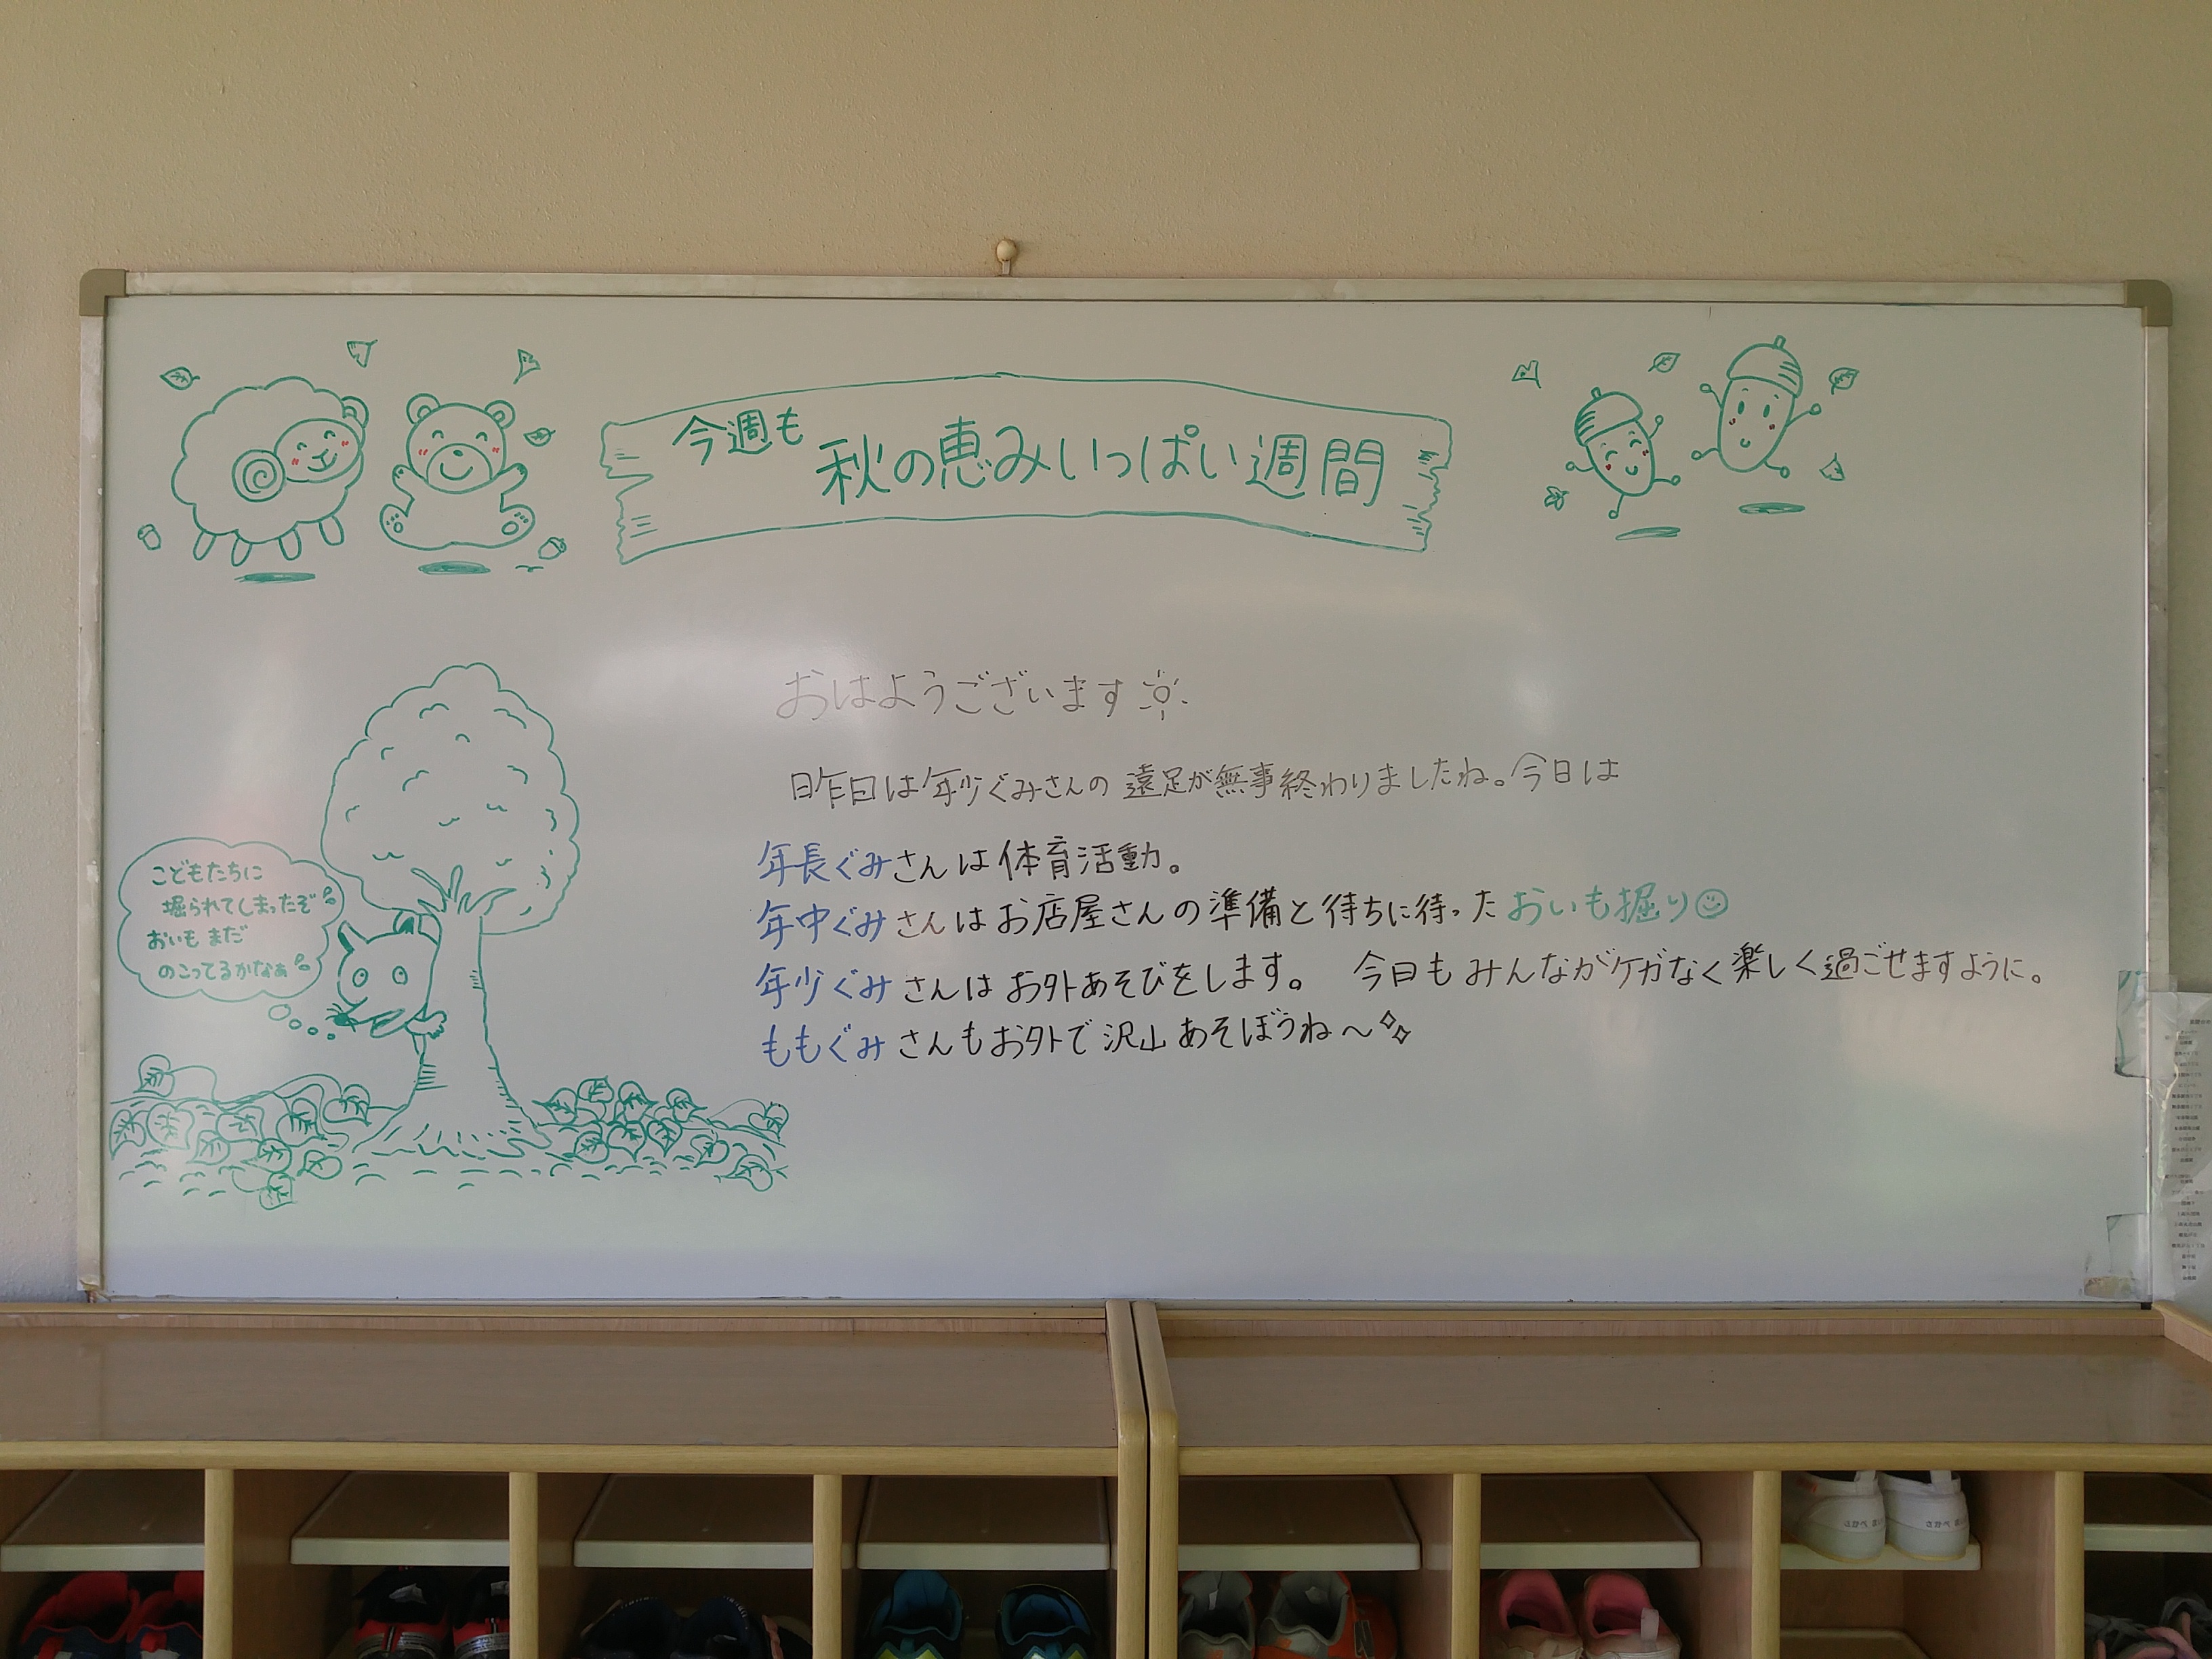 今週も
秋の恵みいっぱい週間
おはようございます
昨日は年少ぐみさんの遠足が無事終わりましたね。今日は
年長ぐみさんは体育活動。
年中ぐみさんはお店屋さんの準備と待ちに待ったおいも掘り
年少ぐみさんはお外あそびをします。 今日もみんながケガなく楽しく過ごせますように。
ももぐみさんもお外で沢山あそぼうね〜
こどもたちに
掘られてしまったぞ
おいもまだ
のこってるかなぁ
さかべ
さかべ